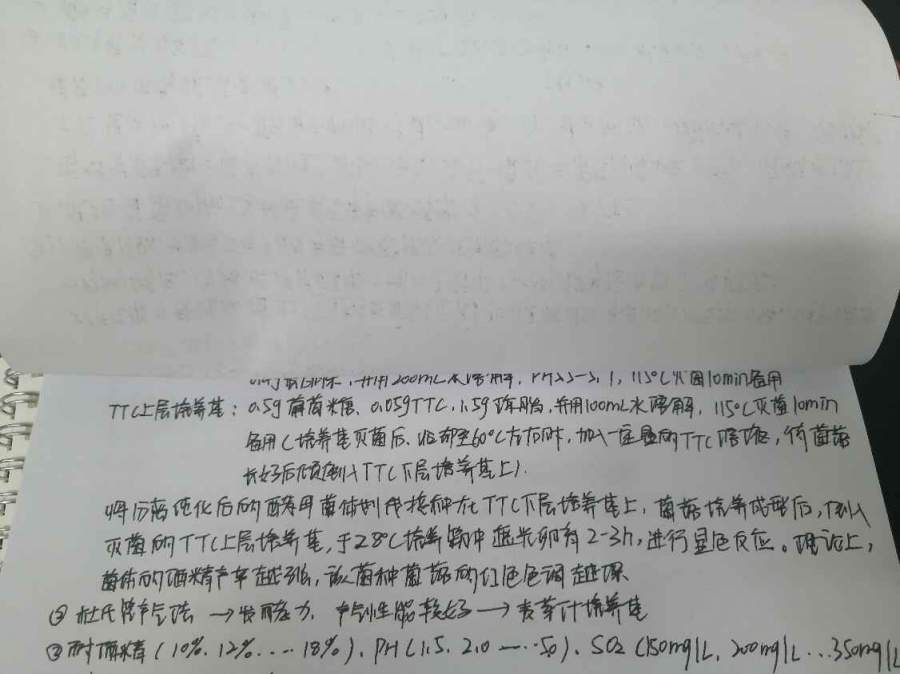 并用200mL水溶解, 115℃灭菌10min备用
TTC上层培养基: 0.5g葡萄糖、0.05gTTC, 1.5g琼脂, 并用100mL水溶解, 115℃灭菌10min
备用(培养基灭菌后、冷却至60℃左右时, 加入一定量的TTC溶液, 待菌落
长好后倾倒入TTC下层培养基上).
将分离纯化后的酵母菌体划线接种在TTC下层培养基上, 菌落培养成型后, 倒入
灭菌的TTC上层培养基, 于28℃培养箱中避光卵育2-3h, 进行显色反应。理论上,
菌体的酒精产率越强, 该菌种菌落的红色色调越深.
② 杜氏管产气法 → 发酵力, 产气性能较好 → 麦芽汁培养基
③ 耐酒精 (10%. 12%.... 18%)、PH (1.5. 2.0 ---- 5.0)、SO2 (150mg/L, 200mg/L...350mg/L